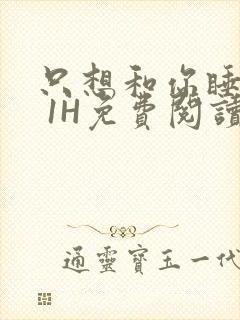 只想和你睡
1H免費閱讀
通靈寶玉一代